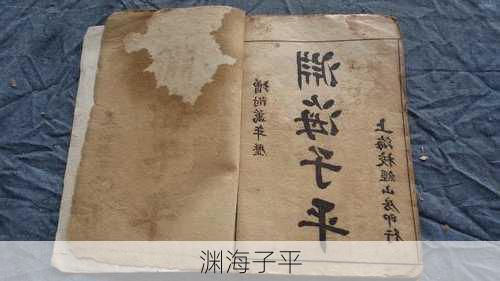 上海校經山房印行
淵海子平
增附萬年歷
渊海子平